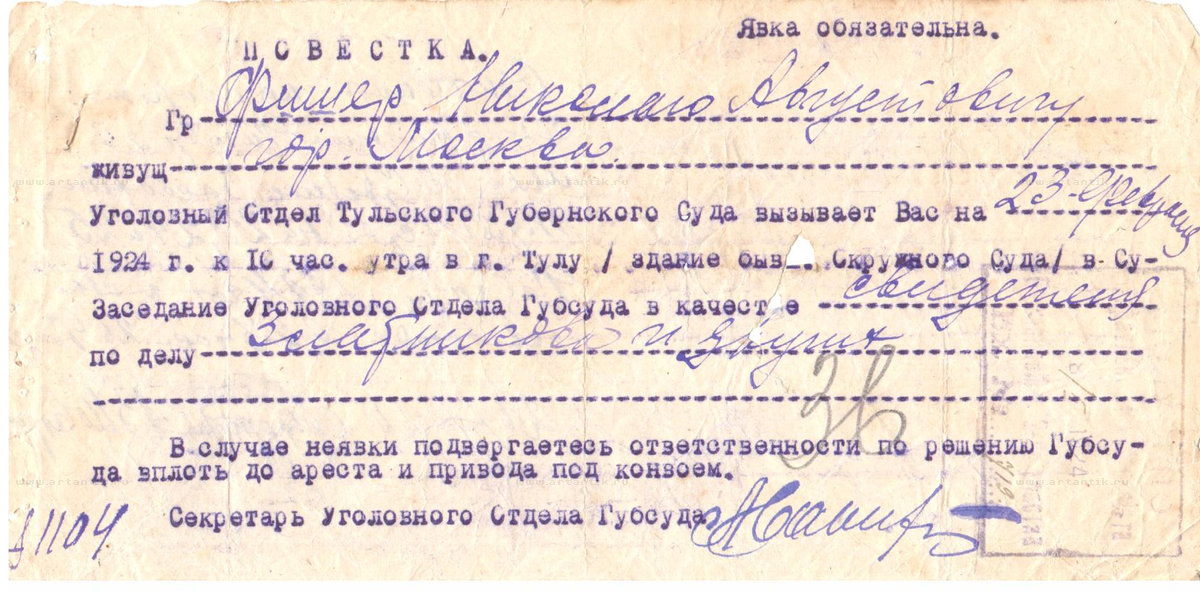 Явка обязательна.
ПОВЕСТКА.
Гр Фишер Николаю Августовичу
живущ гор. Москва.
Уголовный Отдел Тульского Губернского Суда вызывает Вас на 23 февраля
1924 г. к 10 час. утра в г. Тулу / здание быв. Окружного Суда/ в Су-
Заседание Уголовного Отдела Губсуда в качестве свидетеля
по делу и других
36
В случае неявки подвергаетесь ответственности по решению Губсу-
да вплоть до ареста и привода под конвоем.
Секретарь Уголовного Отдела Губсуда
1104
www.artantik.ru